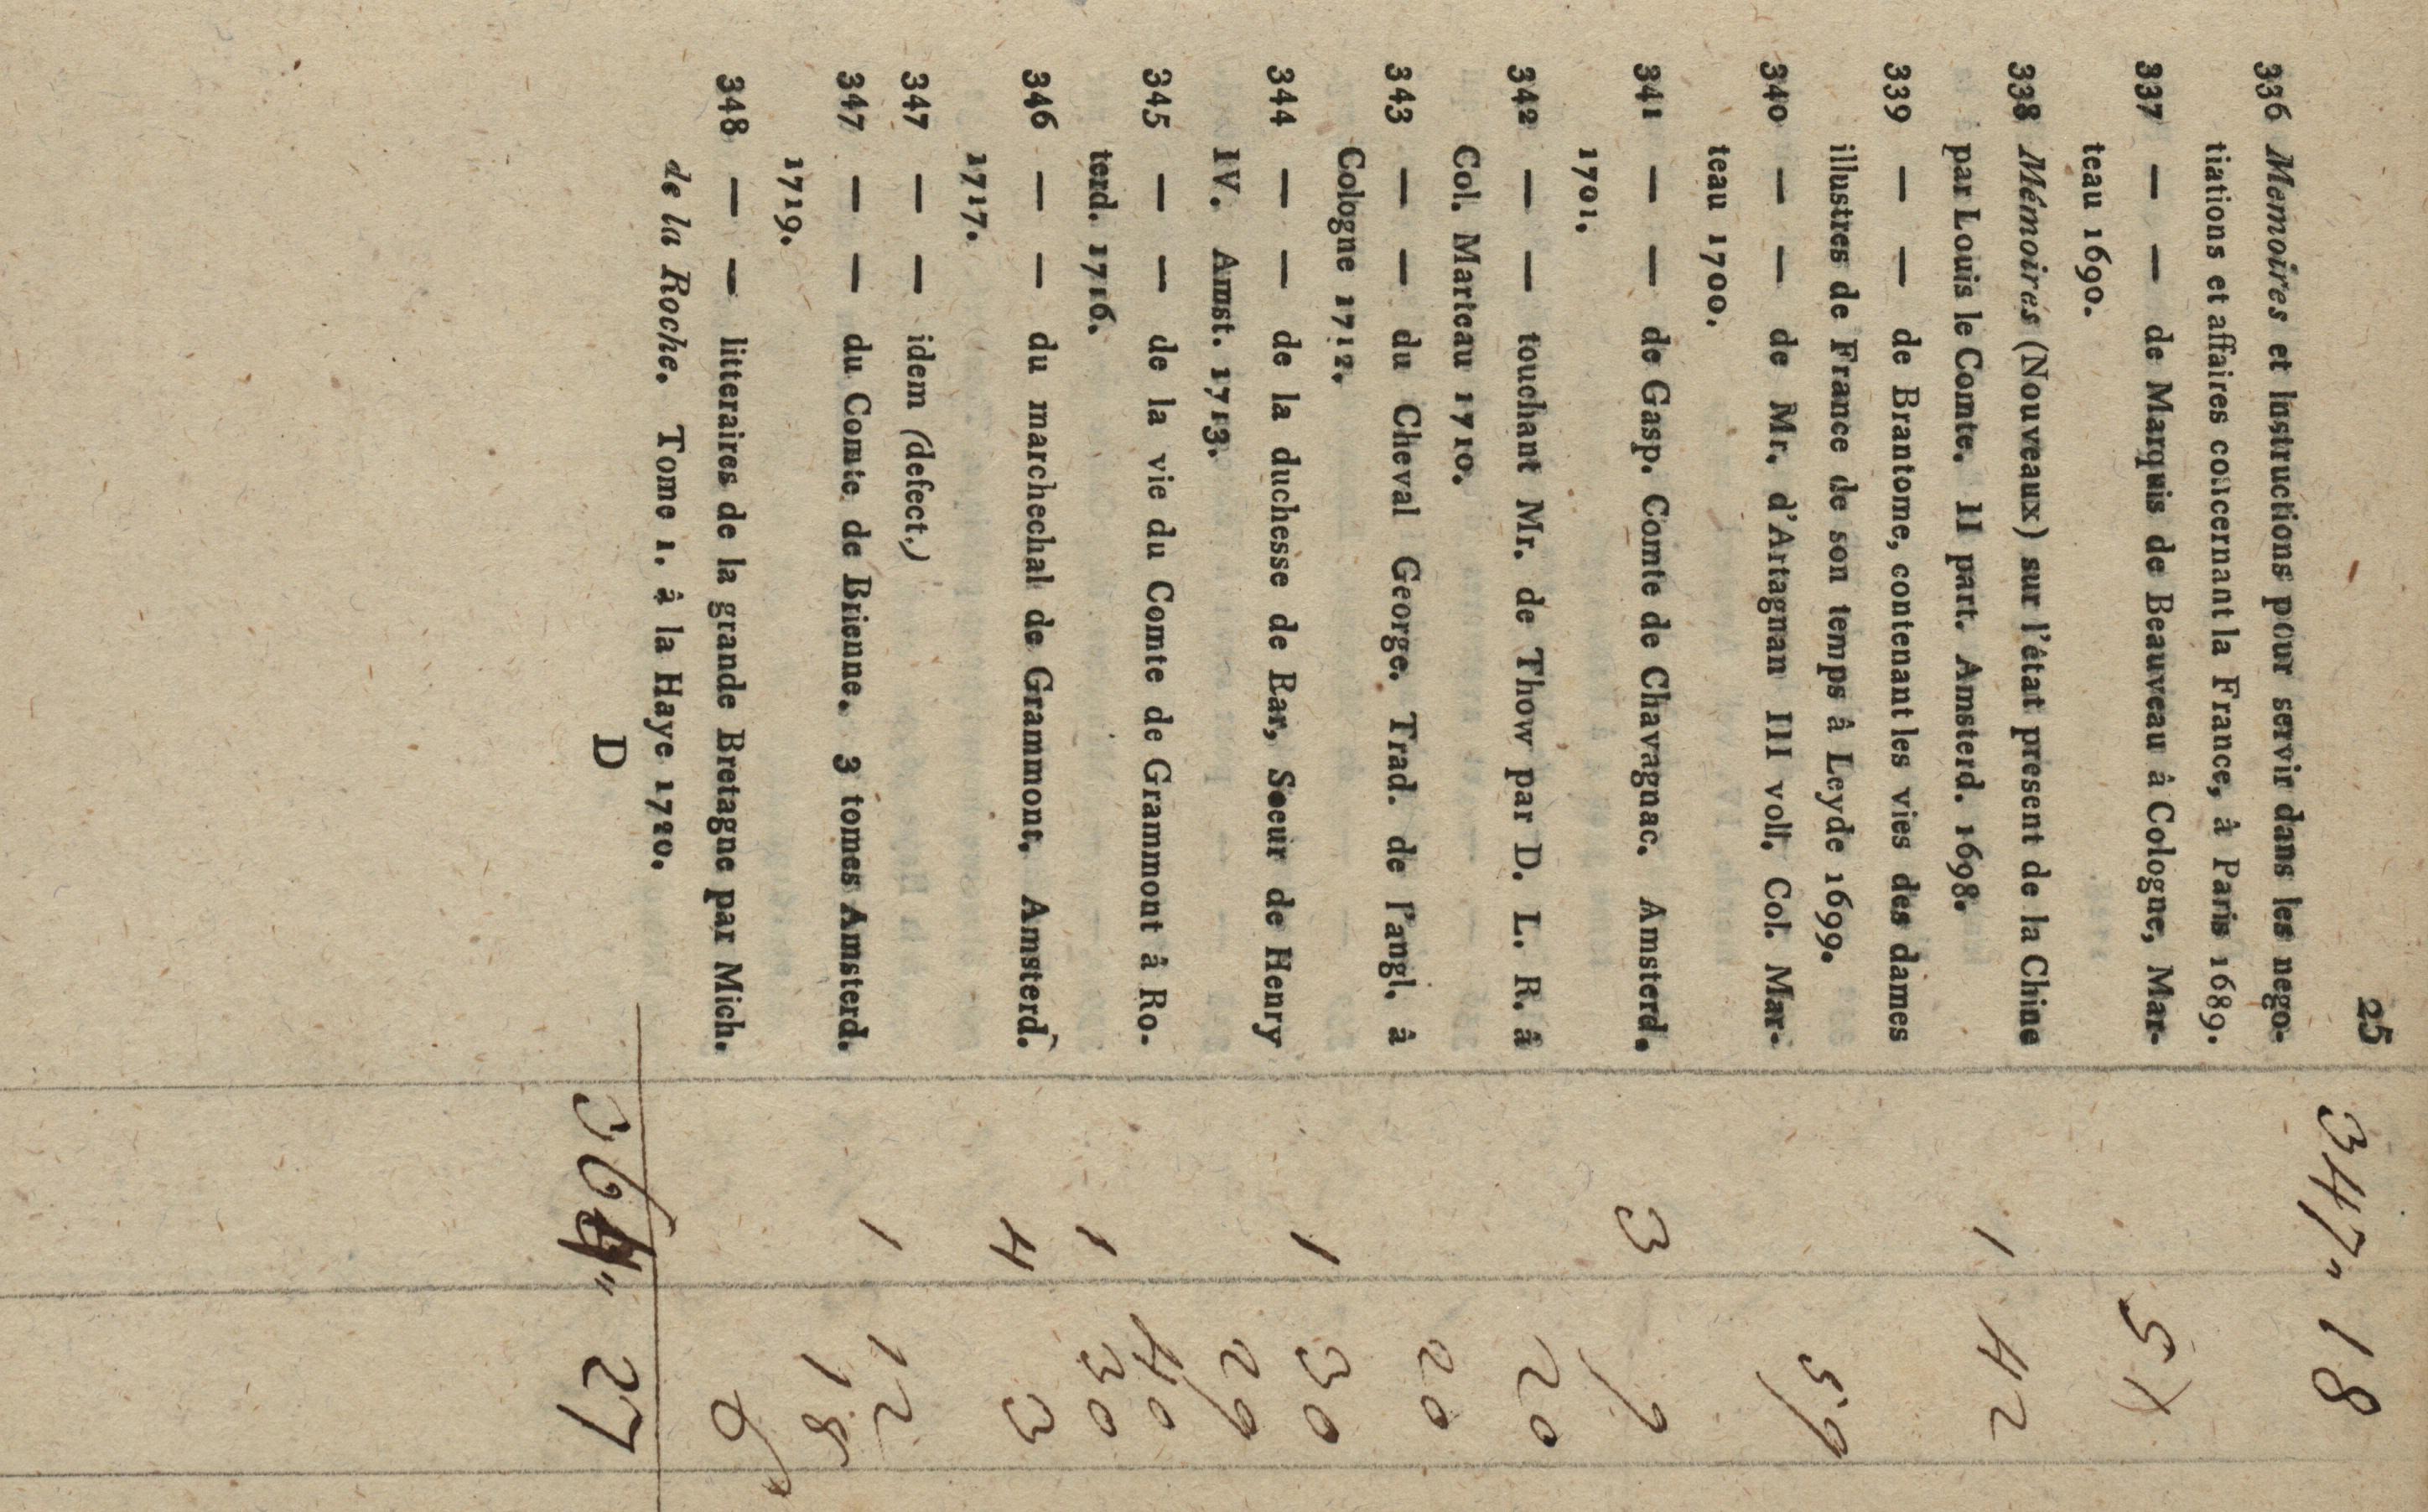 25
347„ 18
336 Memoires et Instructions pour servir dans les nego-
tiations et affaires concernant la France, â Paris 1689.
337 — — de Marquis de Beauveau â Cologne, Mar- 51
teau 1690.
338 Mémoires (Nouveaux) sur l'état present de la Chine 1 42
par Louis le Comte. II part. Amsterd. 1698.
339 — — de Brantome, contenant les vies des dames
illustres de France de son temps â Leyde 1699.
59
340 — — de Mr. d'Artagnan III voll. Col. Mar-
teau 1700.
341 — — de Gasp. Comte de Chavagnac. Amsterd. 3 9
1701.
342 — — touchant Mr. de Thow par D. L. R. â 20
Col. Marteau 1710.
343 — — du Cheval George. Trad. de l'angl. â 20
Cologne 1712.
344 — — de la duchesse de Bar, Soeur de Henry 1 30
IV. Amst. 1713. 29
345 — — de la vie du Comte de Grammont â Ro- 40
terd. 1716. 1 30
346 — — du marchechal de Grammont, Amsterd. 4 3
1717.
347 — — idem (defect.)
347 — — du Comte de Brienne. 3 tomes Amsterd. 1 12
1719. 18
348 — — litteraires de la grande Bretagne par Mich. 6
de la Roche. Tome 1. â la Haye 1720.
D
364„ 27